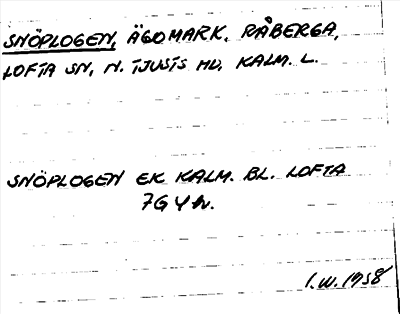 SNÖPLOGEN, ÄGOMARK. RÅBERGA,
LOFTA SN, N. TJUSTS HD, KALM. L.
SNÖPLOGEN EK KALM. BL. LOFTA
7G4h.
I.W. 1958